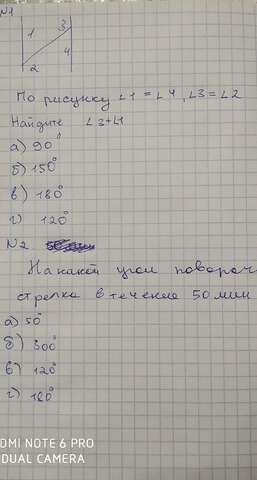 N1
1 3
4
2
По рисунку ∠1 = ∠4, ∠3 = ∠2
Найдите ∠3+∠1
а) 90°
б) 150°
в) 180°
г) 120°
N2
На какой угол поворач
стрелка в течение 50 мин
а) 50°
б) 300°
в) 120°
г) 180°
DMI NOTE 6 PRO
DUAL CAMERA